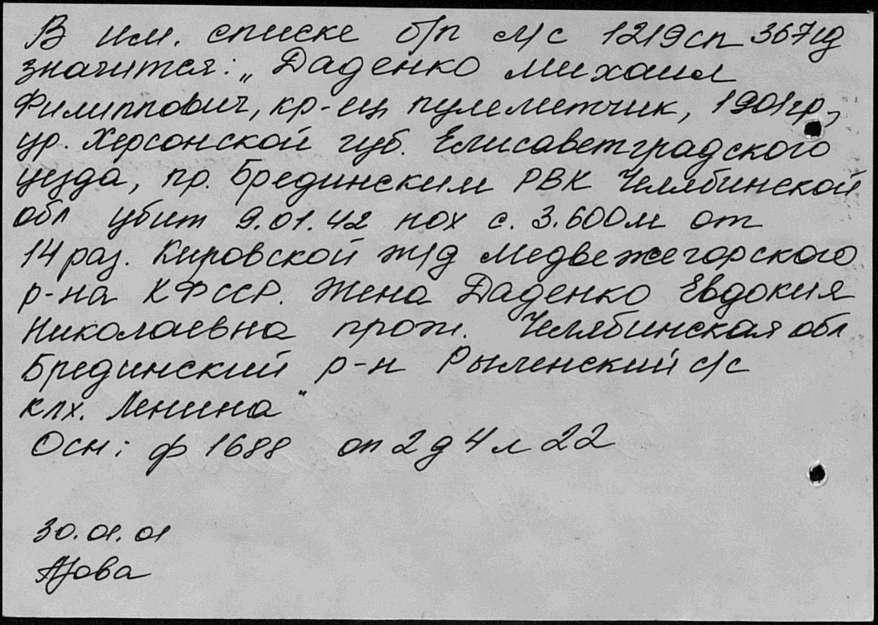 В им. списке б/п л/с 1219сп 367сд
значится: „Даденко Михаил
Филиппович, кр-ец пулеметчик, 1901гр,
ур. Херсонской губ. Елисаветградского
уезда, пр. Брединским РВК Челябинской
обл убит 9.01.42 пох с. 3.600м от
14 раз. Кировской ж/д Медвежегорского
р-на КФССР. Жена Даденко Евдокия
Николаевна прож. Челябинская обл
Брединский р-н Рыленский с/с
клх. Ленина"
Осн: ф 1688 оп 2 д 4 л 22
30.01.01